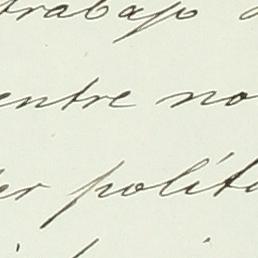 trabajo
entre no
er polít